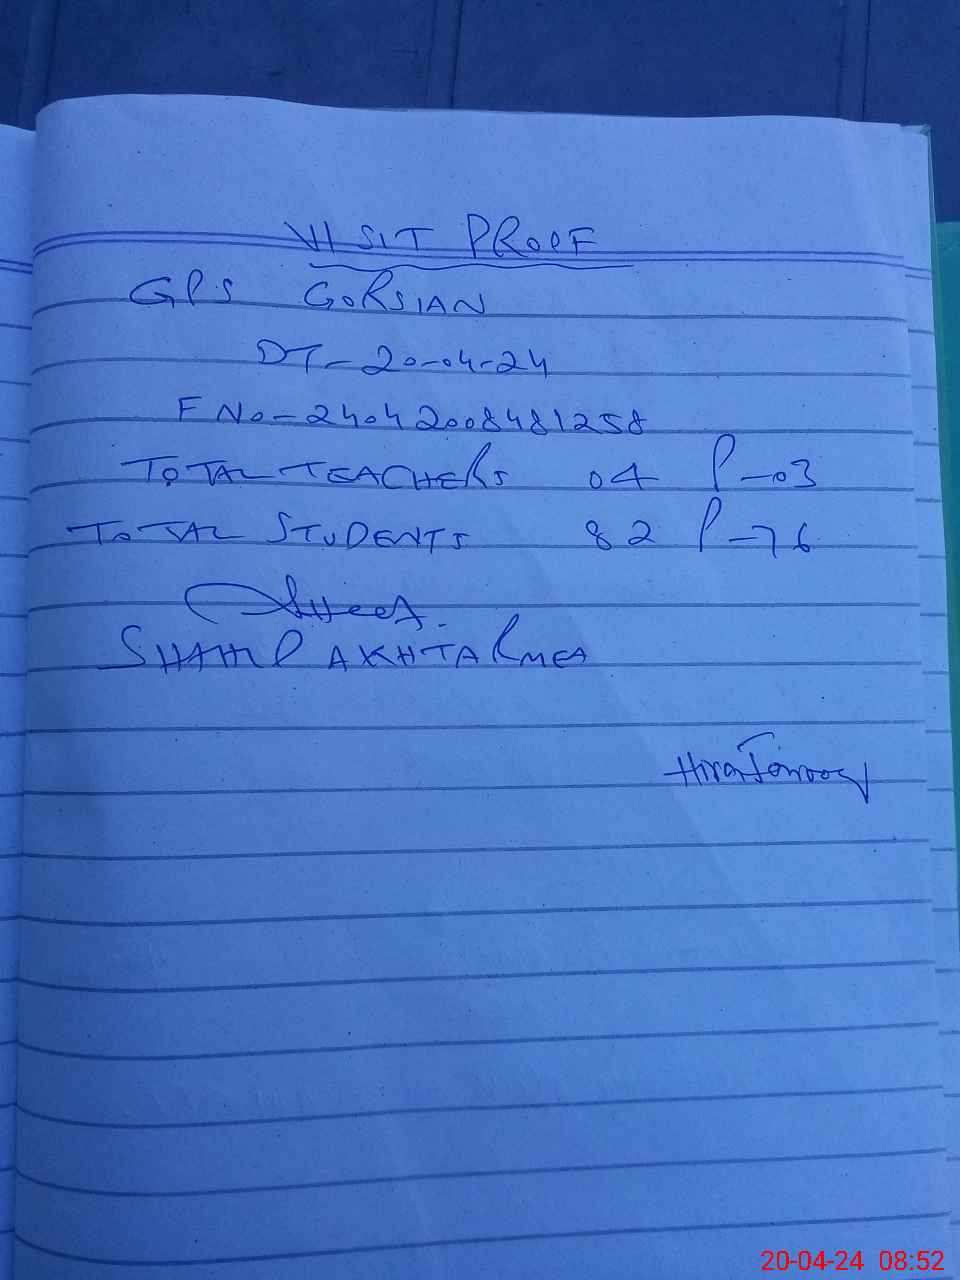 VISIT PROOF
GPS GORSIAN
DT-20-04-24
F No-24042008481258
TOTAL TEACHERS 04 P-03
TOTAL STUDENTS 82 P-76
AKHTAR MEA
Hira Farooq
20-04-24 08:52